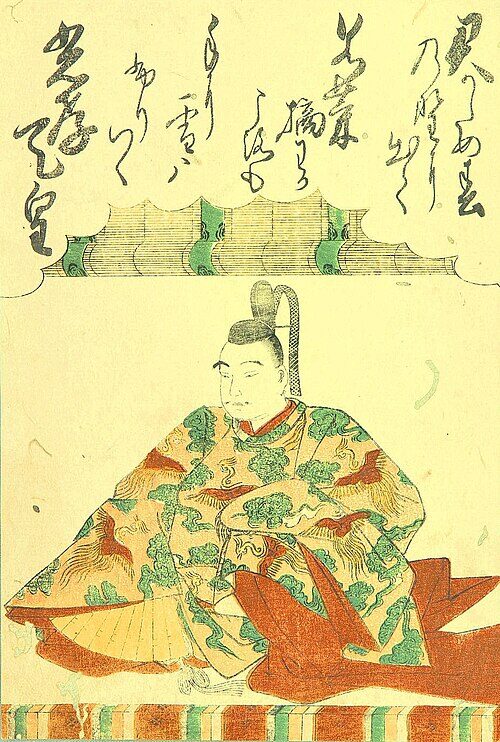 君かため春
乃野に出て
若菜
摘わか
ころも
手に
雪ハ
ふりつゝ
光孝
天皇